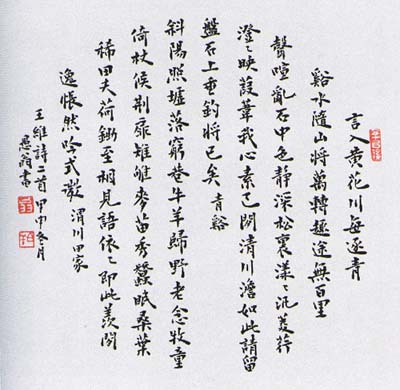 言入黄花川每逐青
谿水隨山將萬轉趣途無百里
聲喧亂石中色靜深松裏漾〻汎菱荇
澄〻映葭葦我心素已閑清川澹如此請留
盤石上垂釣將已矣 青谿
斜陽照墟落窮巷牛羊歸野老念牧童
倚杖候荆扉雉雊麥苗秀蠶眠桑葉
稀田夫荷鋤至相見語依〻即此羡閑
逸悵然吟式微 渭川田家
王維詩二首甲申冬月
翁書